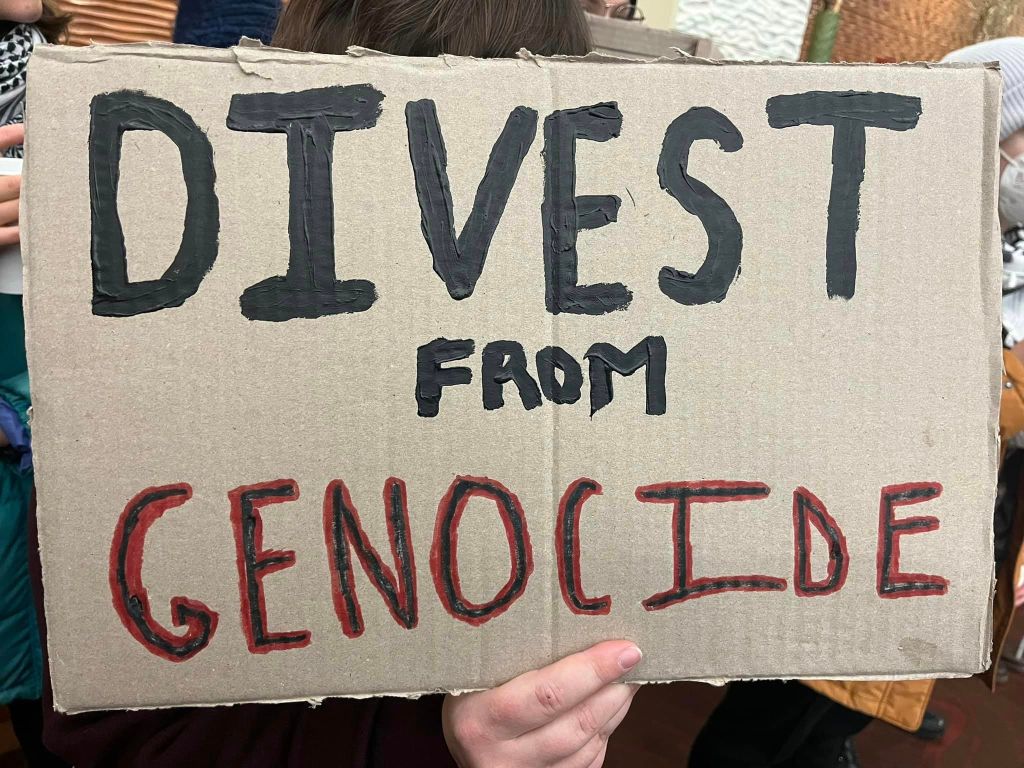 DIVEST
FROM
GENOCIDE